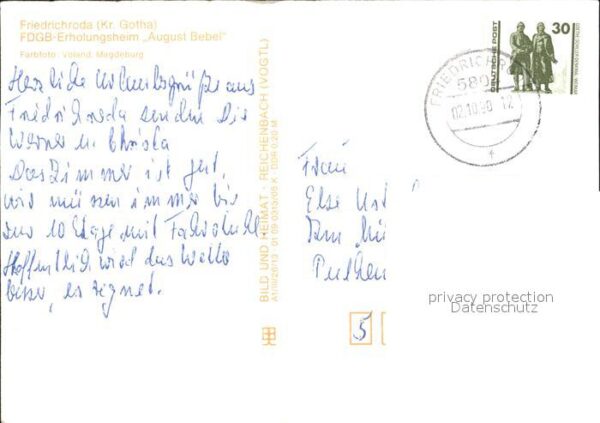 Friedrichroda (Kr. Gotha)
FDGB-Erholungsheim „August Bebel"
Farbfoto: Voland, Magdeburg
Herzliche Urlaubsgrüße aus
Friedrichroda senden Die
Werner u. Christa
Das Zimmer ist gut,
wir müssen immer bis
zur 10 Etage mit Fahrstuhl
Hoffentlich wird das Wetter
besser, es regnet.
BILD UND HEIMAT · REICHENBACH (VOGTL)
DDR 0,20 M
DEUTSCHE POST
30
FRIEDRICHR
580
02.10.90-12
f
Frau
Else
Am
5
privacy protection
Datenschutz